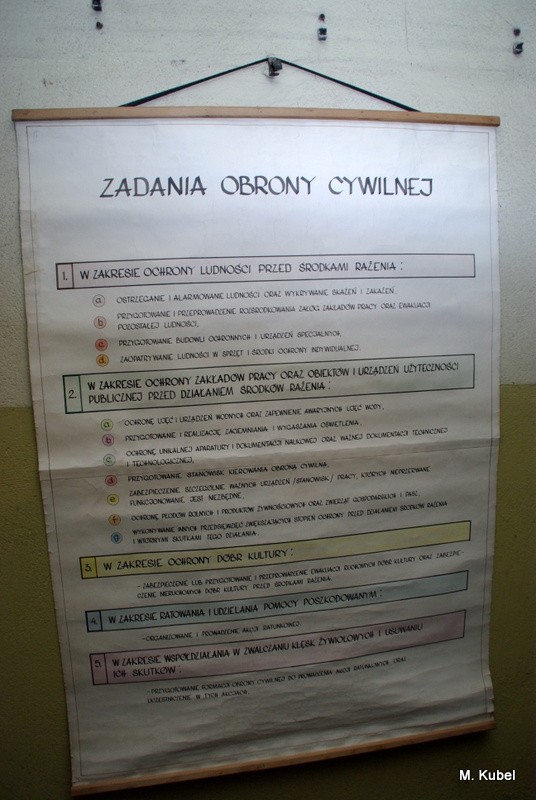 ZADANIA OBRONY CYWILNEJ
1. W ZAKRESIE OCHRONY LUDNOŚCI PRZED ŚRODKAMI RAŻENIA :
a OSTRZEGANIE I ALARMOWANIE LUDNOŚCI ORAZ WYKRYWANIE SKAŻEŃ I ZAKAŻEŃ,
b PRZYGOTOWANIE I PRZEPROWADZENIE ROZŚRODKOWANIA ZAŁÓG ZAKŁADÓW PRACY ORAZ EWAKUACJI
POZOSTAŁEJ LUDNOŚCI,
c PRZYGOTOWANIE BUDOWLI OCHRONNYCH I URZĄDZEŃ SPECJALNYCH,
d ZAOPATRYWANIE LUDNOŚCI W SPRZĘT I ŚRODKI OCHRONY INDYWIDUALNEJ.
2. W ZAKRESIE OCHRONY ZAKŁADÓW PRACY ORAZ OBIEKTÓW I URZĄDZEŃ UŻYTECZNOŚCI
PUBLICZNEJ PRZED DZIAŁANIEM ŚRODKÓW RAŻENIA :
a OCHRONĘ UJĘĆ I URZĄDZEŃ WODNYCH ORAZ ZAPEWNIENIE AWARYJNYCH UJĘĆ WODY,
b PRZYGOTOWANIE I REALIZACJĘ ZACIEMNIANIA I WYGASZANIA OŚWIETLENIA,
c OCHRONĘ UNIKALNEJ APARATURY I DOKUMENTACJI NAUKOWEJ ORAZ WAŻNEJ DOKUMENTACJI TECHNICZNEJ
I TECHNOLOGICZNEJ,
d PRZYGOTOWANIE STANOWISK KIEROWANIA OBRONĄ CYWILNĄ,
e ZABEZPIECZENIE SZCZEGÓLNIE WAŻNYCH URZĄDZEŃ /STANOWISK/ PRACY, KTÓRYCH NIEPRZERWANE
FUNKCJONOWANIE JEST NIEZBĘDNE,
f OCHRONĘ PŁODÓW ROLNYCH I PRODUKTÓW ŻYWNOŚCIOWYCH ORAZ ZWIERZĄT GOSPODARSKICH I PASZ,
g WYKONYWANIE INNYCH PRZEDSIĘWZIĘĆ ZWIĘKSZAJĄCYCH STOPIEŃ OCHRONY PRZED DZIAŁANIEM ŚRODKÓW RAŻENIA
I WTÓRNYMI SKUTKAMI TEGO DZIAŁANIA.
3. W ZAKRESIE OCHRONY DÓBR KULTURY :
- ZABEZPIECZENIE LUB PRZYGOTOWANIE I PRZEPROWADZENIE EWAKUACJI RUCHOMYCH DÓBR KULTURY ORAZ ZABEZPIE-
CZENIE NIERUCHOMYCH DÓBR KULTURY PRZED ŚRODKAMI RAŻENIA.
4. W ZAKRESIE RATOWANIA I UDZIELANIA POMOCY POSZKODOWANYM :
- ORGANIZOWANIE I PROWADZENIE AKCJI RATUNKOWEJ.
5. W ZAKRESIE WSPÓŁDZIAŁANIA W ZWALCZANIU KLĘSK ŻYWIOŁOWYCH I USUWANIU
ICH SKUTKÓW :
- PRZYGOTOWANIE FORMACJI OBRONY CYWILNEJ DO PROWADZENIA AKCJI RATUNKOWYCH ORAZ
UCZESTNICZENIE W TYCH AKCJACH.
M. Kubel